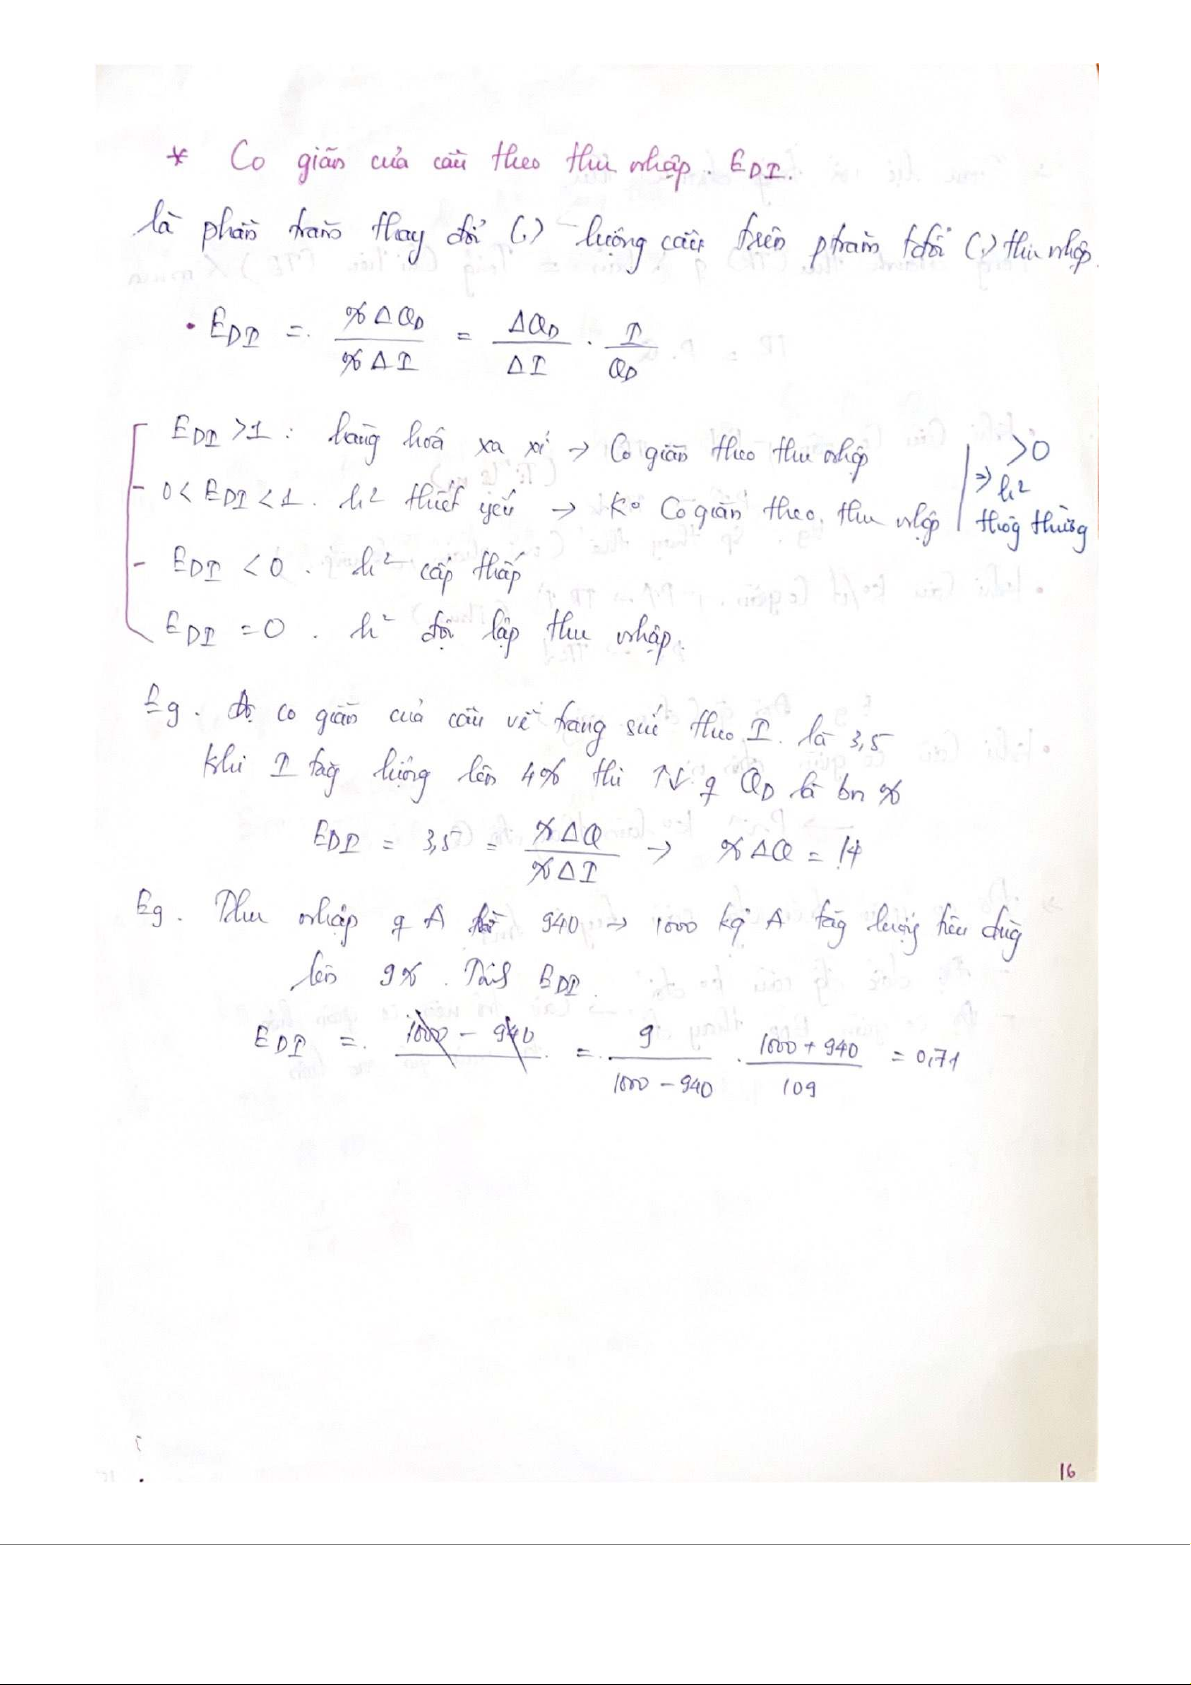 * Co giãn của cầu theo thu nhập. EDI.
là phần trăm thay đổi (.) lượng cầu trên phtrăm tđổi (.) thu nhập.
• EDI = %ΔQD / %ΔI = ΔQD / ΔI . I / QD
EDI > 1 : hàng hoá xa xỉ → Co giãn theo thu nhập
- 0 < EDI < 1 . h² thiết yếu → Ko Co giãn theo thu nhập
>0 ⇒ h² thôg thườg
- EDI < 0 . h² cấp thấp
EDI = 0 . h² độc lập thu nhập.
Eg . Độ co giãn của cầu về trang sức theo I là 3,5
Khi I tăg lượng lên 4% thì ↑↓ q QD là bn %
EDI = 3,5 = %ΔQ / %ΔI → %ΔQ = 14
Eg . Thu nhập q A từ 940 → 1000 kq A tăg lượg tiêu dùg
lên 9% . Tính EDI.
EDI = 1000 - 940 = 9 / 1000 - 940 . 1000 + 940 / 109 = 0,71
16